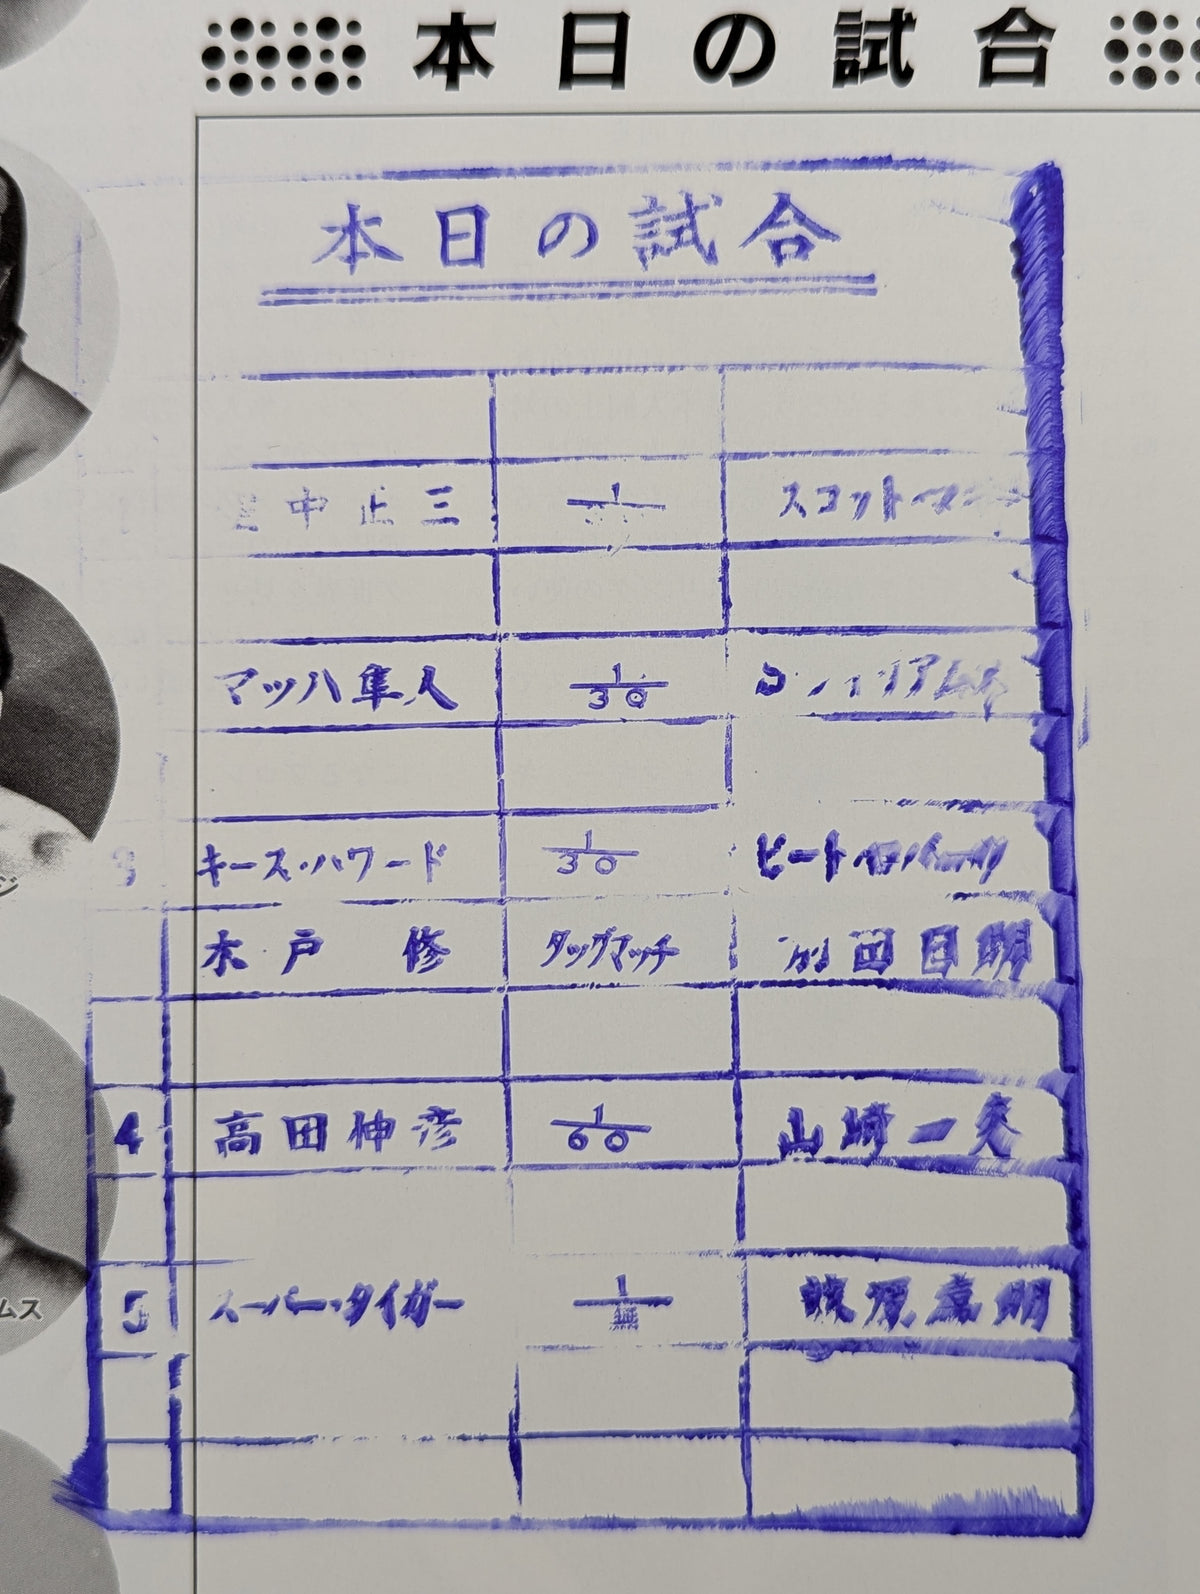 本日の試合
本日の試合
中 三 1 スコット・マ
マッハ隼人 1/30
3 キース・ハワード 1/30 ピート・ロバーツ
木戸 修 タッグマッチ 前田日明
4 高田伸彦 1/60 山崎一夫
5 スーパー・タイガー 1/無 藤原喜明
ムス